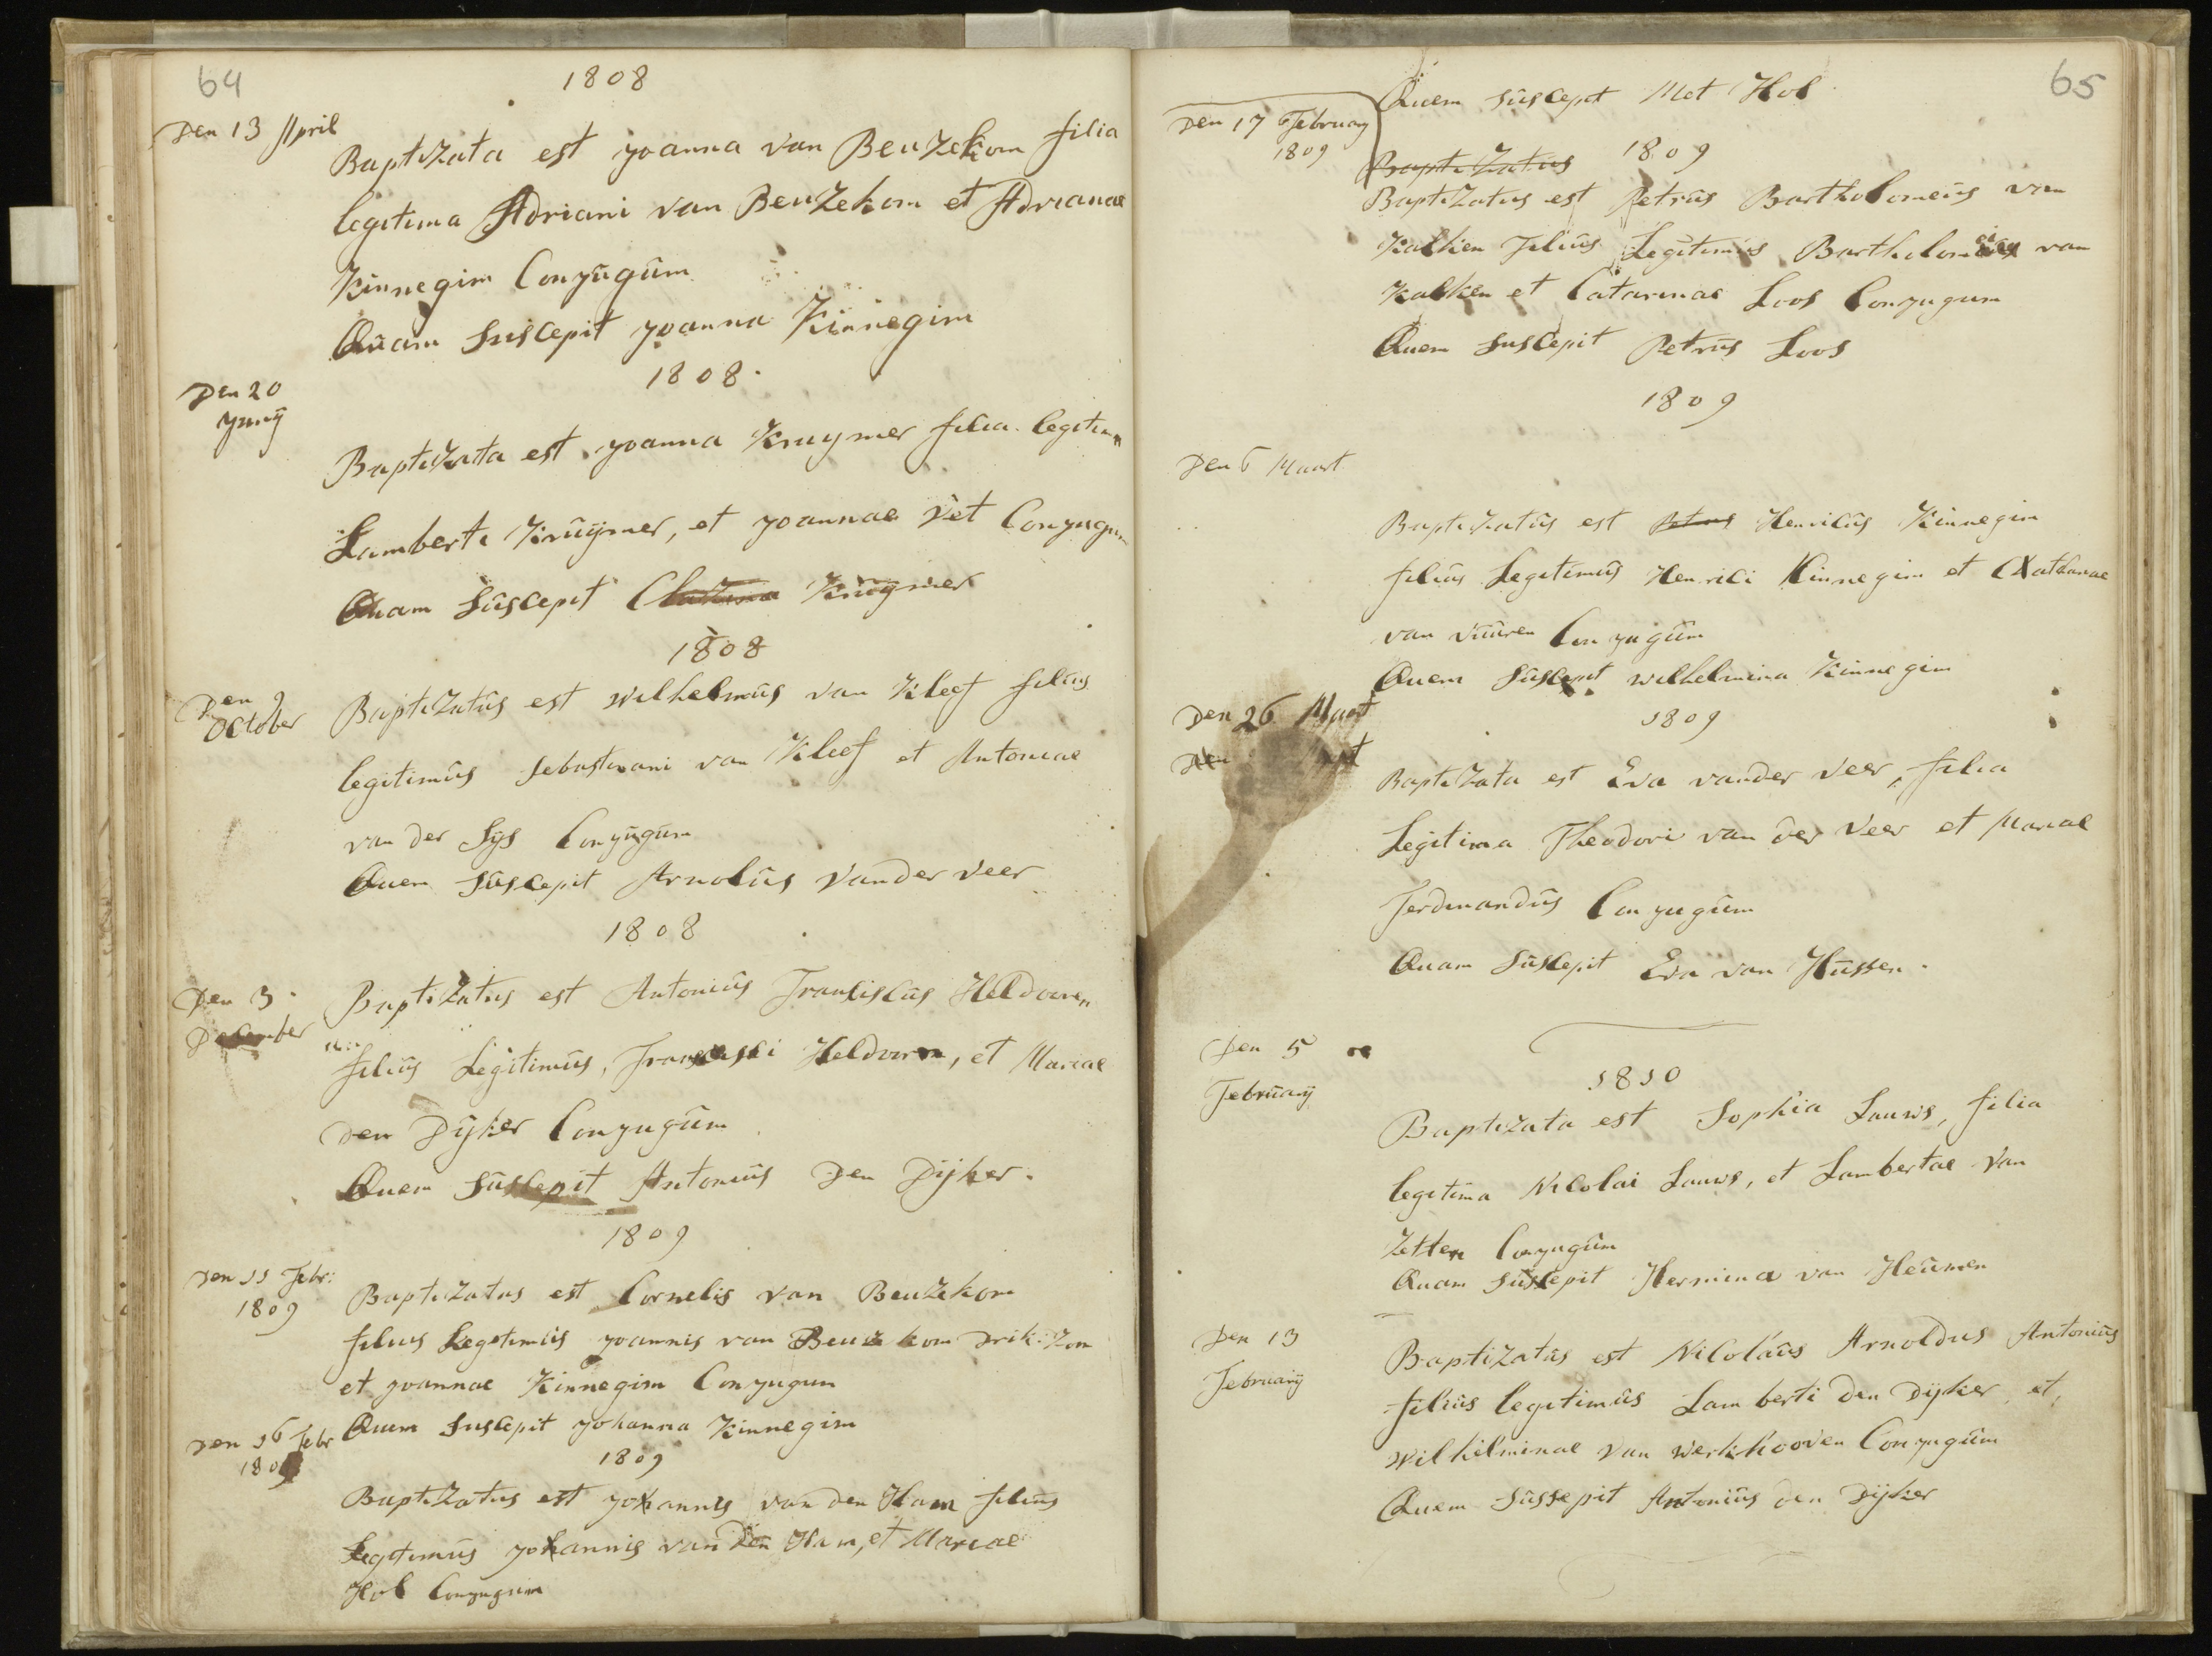 64
1808
Den 13 April
Baptizata est joanna van Beuzekom filia
legitima Adriani van Beuzekom et Adrianae
Kinnegim Conjugum
Quam Suscepit joanna Kinnegim
1808.
Den 20
junij
Baptizata est joanna Kruymer filia legitima
Lamberti Kruijmer, et joannae Vet Conjugum
Quam Suscepit Kruijmer
1808
Den 9
October
Baptizatus est Wilhelmus van Kleef filius
legitimus Sebastiani van Kleef et Antoniae
van der Sijs Conjugum
Quem Suscepit Arnolus Vander Veer
1808
Den 3.
December
Baptizatus est Antonius Fransiscus Heldoven
filius Legitimus, Fransisci Heldoven, et Mariae
Den Dijker Conjugum
Quem Suscepit Antonius Den Dijker.
1809
Den 11 Febr:
1809
Baptizatus est Cornelis van Beuzekom
filius Legitimus joannis van Beuzekom Drik: Zon
et joannae Kinnegim Conjugum
Quem Suscepit johanna Kinnegim
Den 16 Febr
1809
1809
Baptizatus est johannis van den Ham filius
Legitimus johannis van Den Ham, et Mariae
Hol Conjugum
65
Quem Suscepit Met Hol
Den 17 February
1809
1809
Baptizatus
Baptizatus est Petrus Bartholomeus van
Kalken Filius Legitimus Bartholomei van
Kalken et Catarinae Loos Conjugum
Quem Suscepit Petrus Loos
1809
Den 6 Maart
Baptizatus est Petrus Henricus Kinnegim
filius Legitimus Henrici Kinnegim et
van Vuuren Conjugum
Quem Suscepit Wilhelmina Kinnegim
Den 26 Maart
1809
Den
Baptizata est Eva vander Veer, filia
Legitima Theodori van der Veer et Mariae
Ferdinandus Conjugum
Quam Suscepit Eva van Hussen.
Den 5
February
1810
Baptizata est Sophia Lauws, filia
legitima Nicolai Lauws, et Lambertae Van
Zetten Conjugum
Quam Suscepit Hermina van Heumen
Den 13
February
Baptizatus est Nicolaus Arnoldus Antonius
filius legitimus Lamberti den Dijker, et,
Wilhelminae Van Werkhooven Conjugum
Quem Sussepit Antonius den Dijker